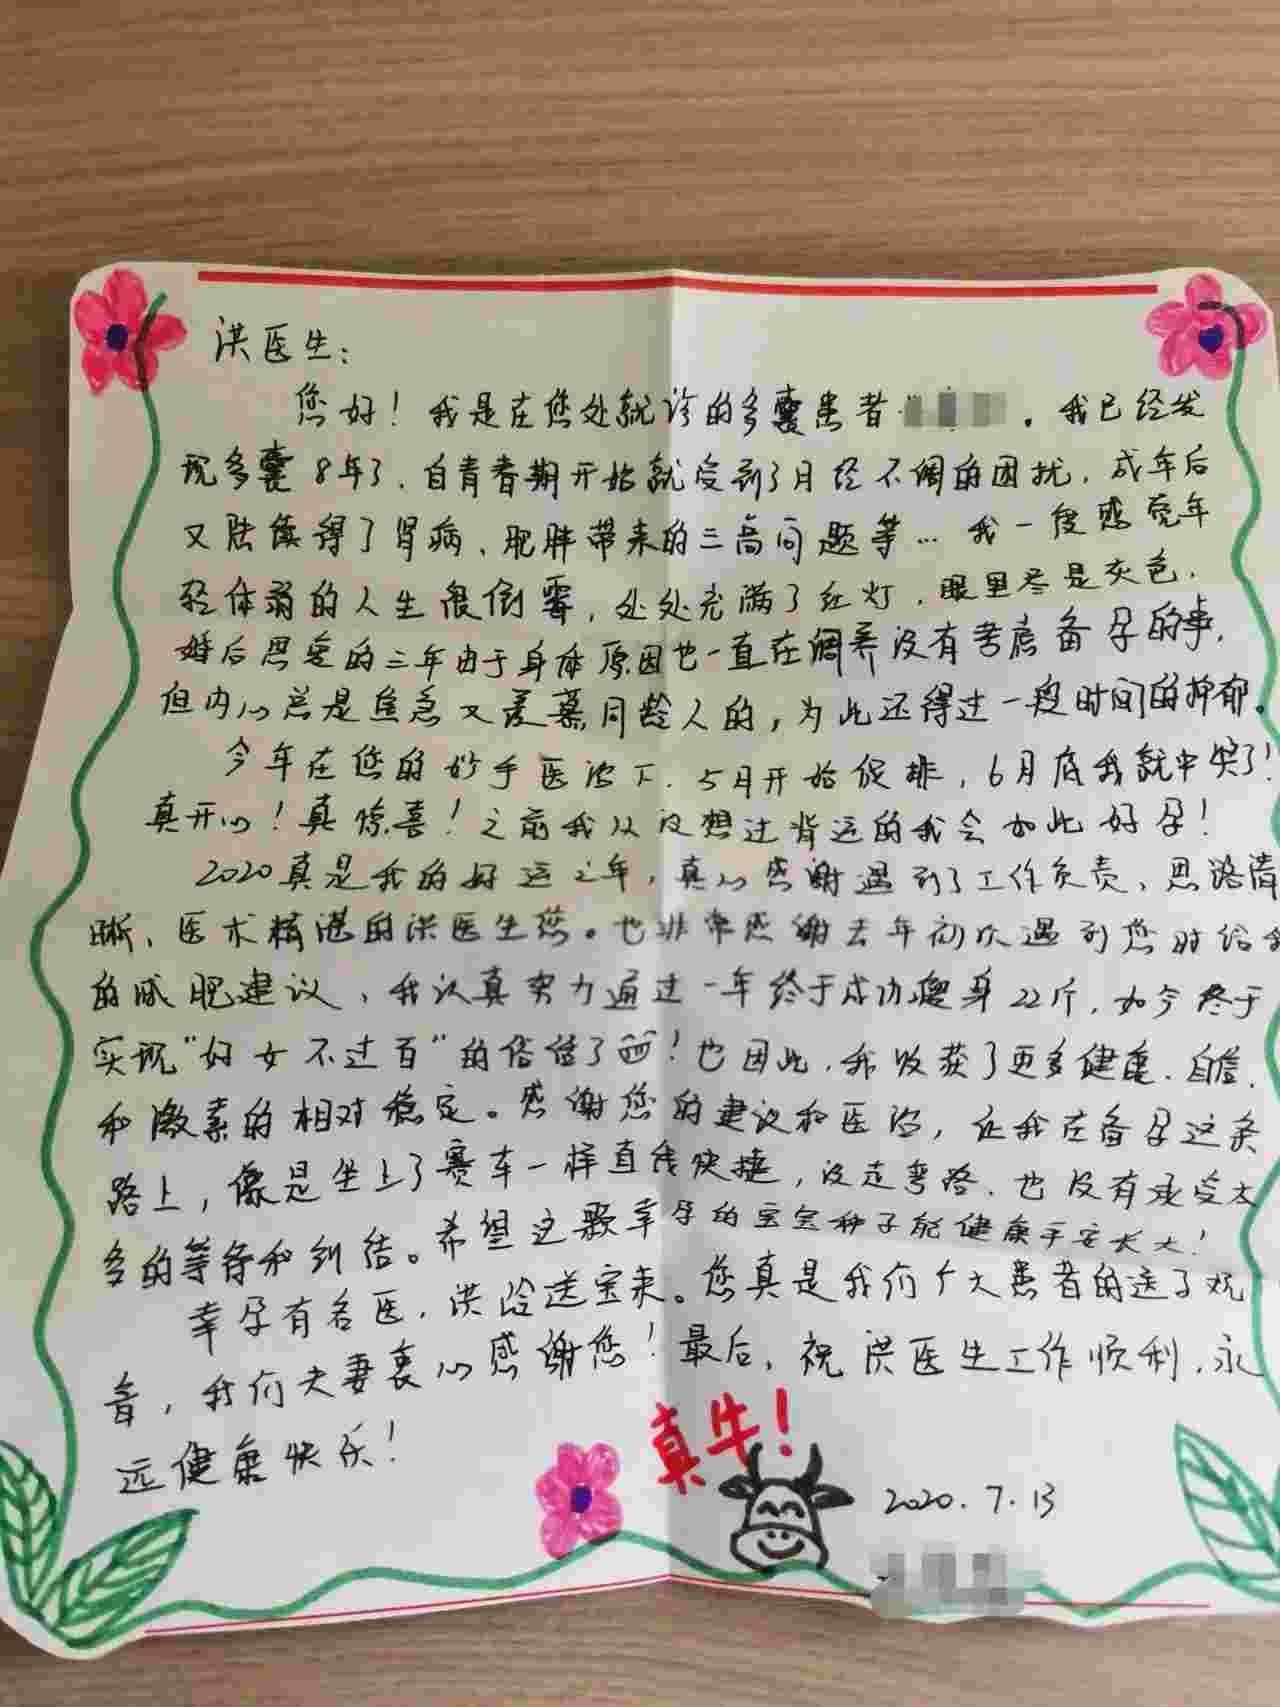 洪医生:
您好!我是在您处就诊的多囊患者"。我已经发
现多囊8年了,自青春期开始就受到了月经不调的困扰,成年后
又陆续得了胃病、肥胖带来的三高问题等…我一度感觉年
轻体弱的人生很倒霉,处处充满了红灯,眼里尽是灰色,
婚后恩爱的三年由于身体原因也一直在调养没有考虑备孕的事,
但内心总是焦急又羡慕同龄人的,为此还得过一段时间的抑郁。
今年在您的妙手医治下,5月开始促排,6月底我就中奖了!
真开心!真惊喜!之前我从没想过背运的我会如此好孕!
2020真是我的好运之年,真心感谢遇到了工作负责、思路清
晰、医术精湛的洪医生您。也非常感谢去年初次遇到您时给我
的减肥建议,我认真努力通过一年终于成功瘦身22斤,如今终于
实现"好女不过百"的俗话了!也因此,我收获了更多健康、自信、
和激素的相对稳定。感谢您的建议和医治,让我在备孕这条
路上,像是坐上了赛车一样直线快捷,没走弯路、也没有承受太
多的等待和纠结。希望这颗幸孕的宝宝种子能健康平安长大!
幸孕有名医,洪治送宝来。您真是我们广大患者的送子观
音,我们夫妻衷心感谢您!最后,祝洪医生工作顺利,永
远健康快乐!
真牛!
2020.7.13